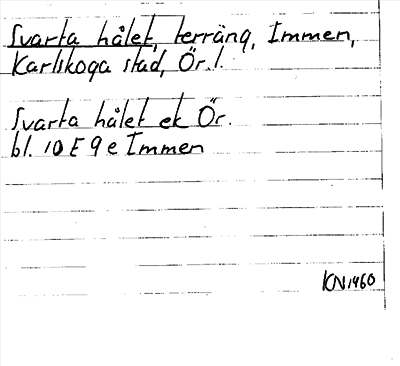 Svarta hålet, terräng, Immen,
Karlskoga stad, Ör. l.
Svarta hålet ek Ör.
bl. 10 E 9 e Immen
KN 1960